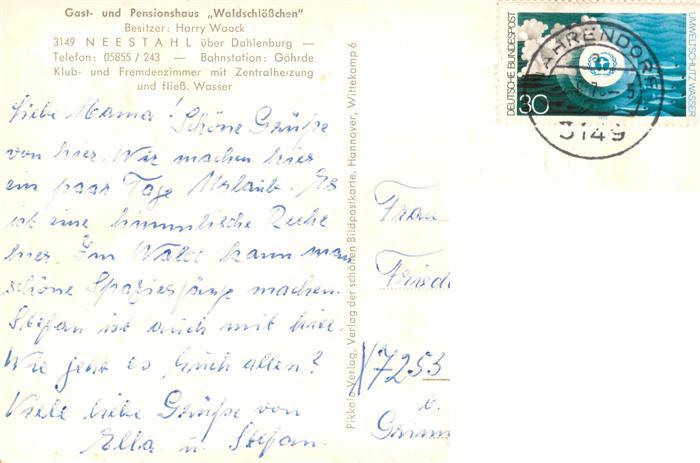 Gast- und Pensionshaus „Waldschlößchen"
Besitzer: Harry Waack
3149 NEESTAHL über Dahlenburg —
Telefon: 05855 / 243 — Bahnstation: Göhrde
Klub- und Fremdenzimmer mit Zentralheizung
und fließ. Wasser
Liebe Mama! Schöne Grüße
von hier. Wir machen hier
ein paar Tage Urlaub. Es
ist eine himmlische Ruhe
hier. Im Wald kann man
schöne Spaziergänge machen.
Stefan ist auch mit hier.
Wie geht es Euch allen?
Viele liebe Grüße von
Ella u. Stefan.
Pikkolo-Verlag, Verlag der schönen Bildpostkarte, Hannover, Wittekamp 6
DEUTSCHE BUNDESPOST
30
UMWELTSCHUTZ: WASSER
AHRENDORF
3149
Frau
Fried
7253